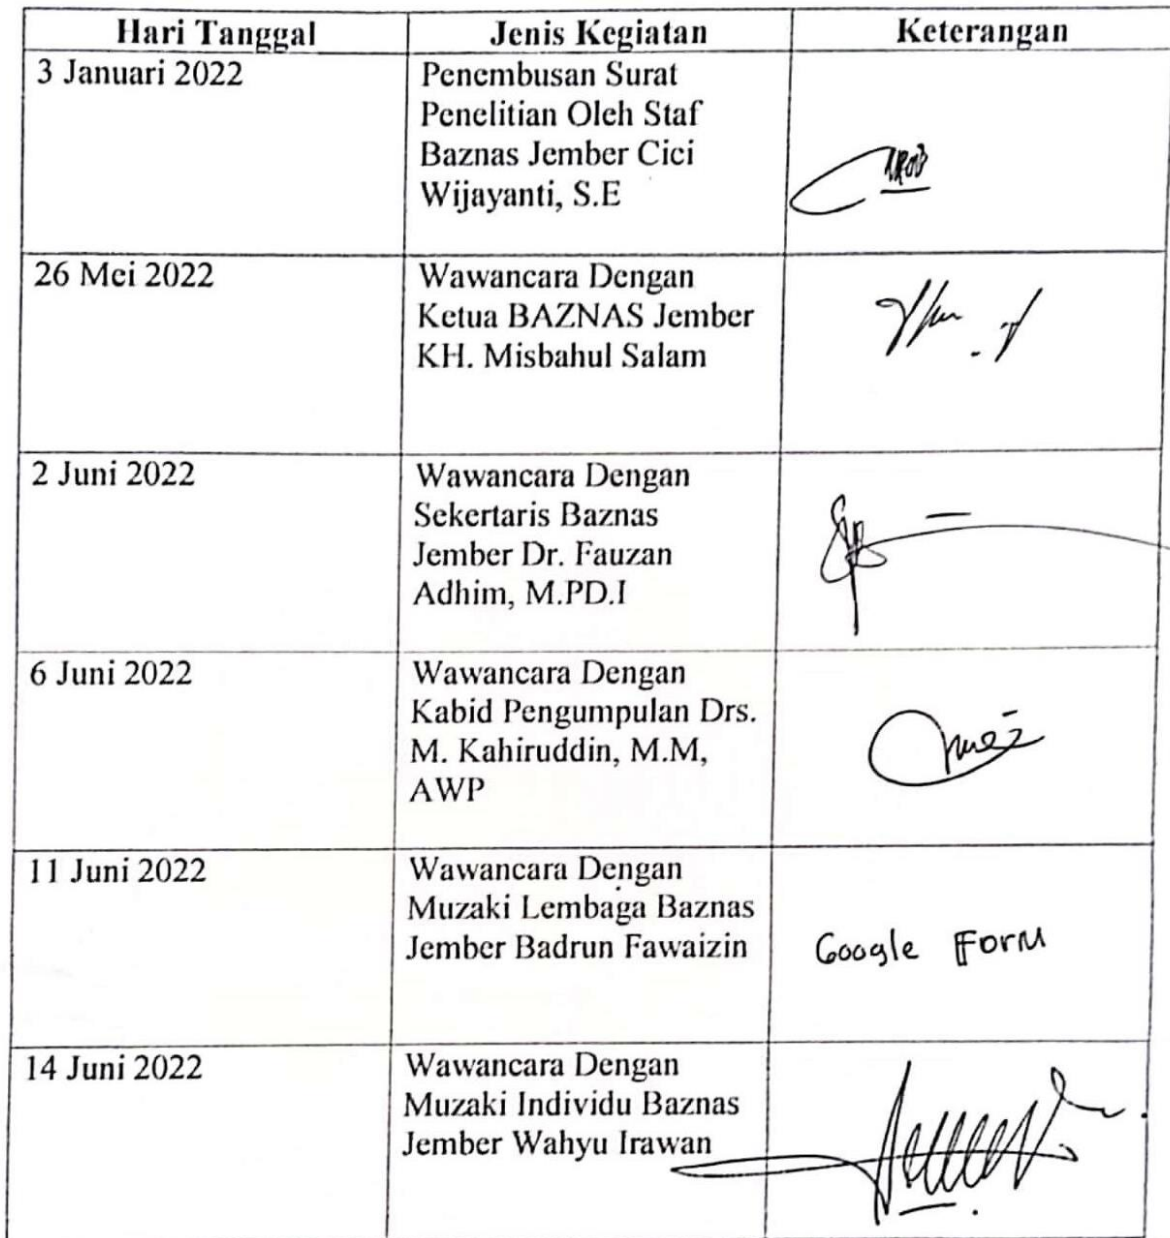 Hari Tanggal Jenis Kegiatan Keterangan
3 Januari 2022
Penembusan Surat
Penelitian Oleh Staf
Baznas Jember Cici
Wijayanti, S.E
26 Mei 2022
Wawancara Dengan
Ketua BAZNAS Jember
KH. Misbahul Salam
2 Juni 2022
Wawancara Dengan
Sekertaris Baznas
Jember Dr. Fauzan
Adhim, M.PD.I
6 Juni 2022
Wawancara Dengan
Kabid Pengumpulan Drs.
M. Kahiruddin, M.M,
AWP
11 Juni 2022
Wawancara Dengan
Muzaki Lembaga Baznas
Jember Badrun Fawaizin
Google Form
14 Juni 2022
Wawancara Dengan
Muzaki Individu Baznas
Jember Wahyu Irawan